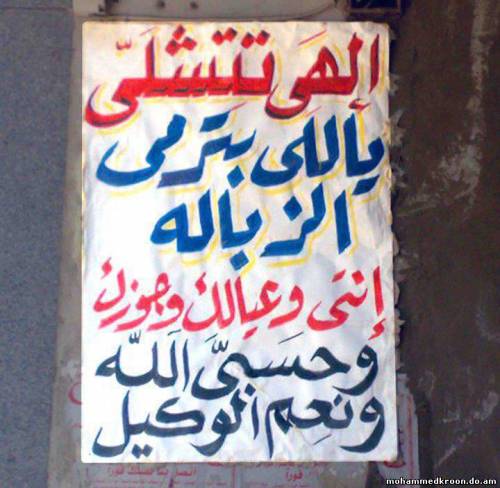 إلهَى تتشلَّى
ياللى بترمى
الزباله
إنتى وعيالك وجوزك
وحسبىَّ اللَّه
ونعم الوكيل
mohammedkroon.do.am